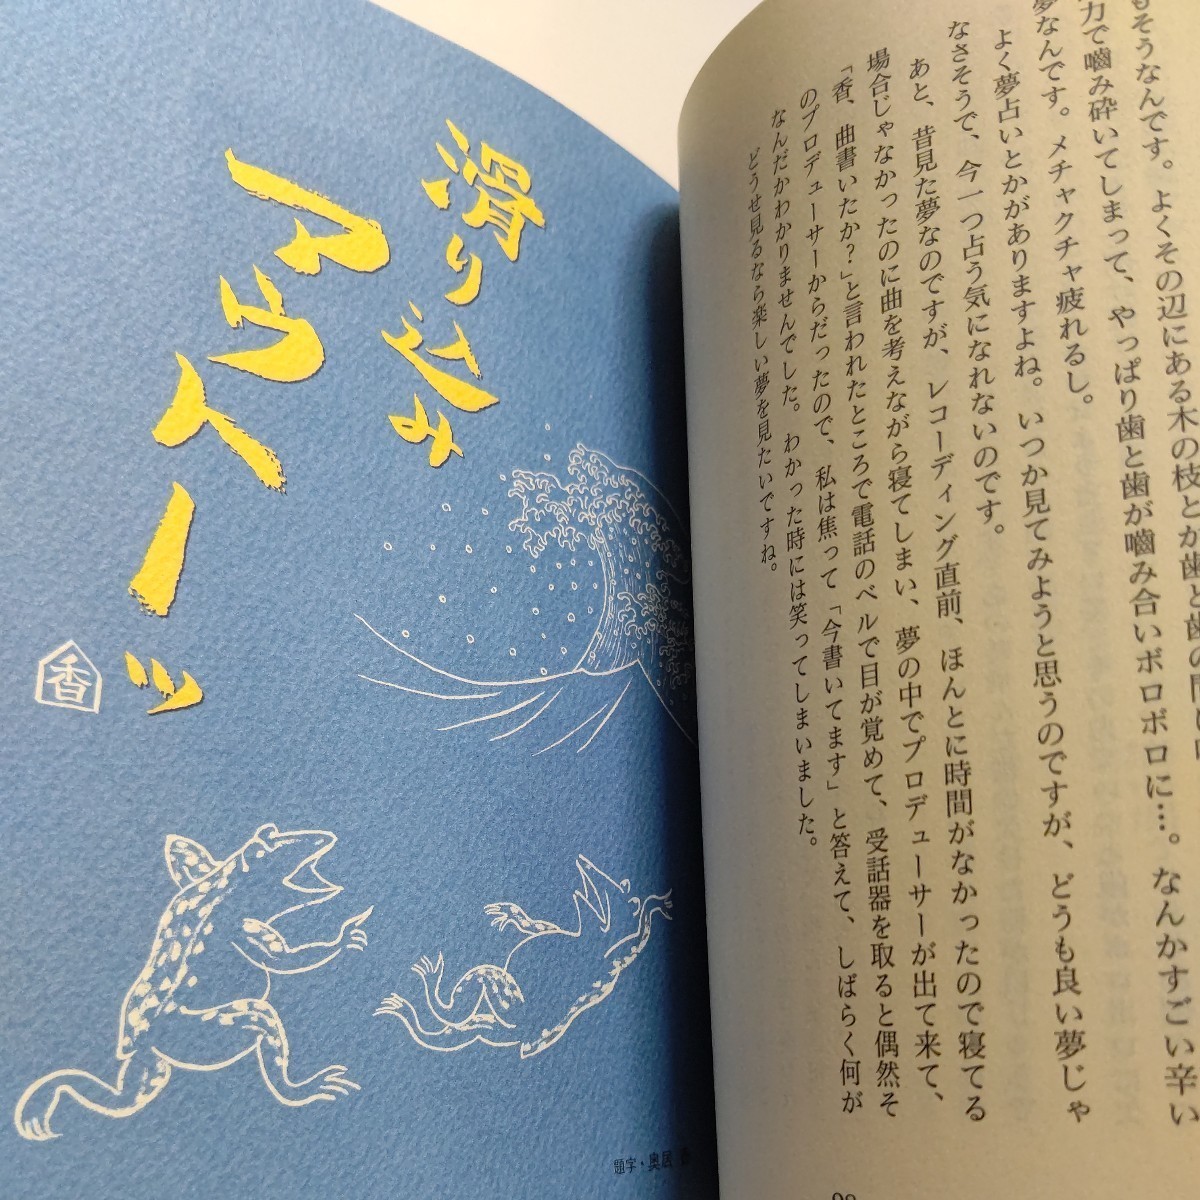 もそうなんです。よくその辺にある木の枝とか歯と歯の間に
力で噛み砕いてしまって、やっぱり歯と歯が噛み合いボロボロに…。なんかすごい辛い
夢なんです。メチャクチャ疲れるし。
よく夢占いとかがありますよね。いつか見てみようと思うのですが、どうも良い夢じゃ
なさそうで、今一つ占う気になれないのです。
あと、昔見た夢なのですが、レコーディング直前、ほんとに時間がなかったので寝てる
場合じゃなかったのに曲を考えながら寝てしまい、夢の中でプロデューサーが出て来て、
「香、曲書いたか?」と言われたところで電話のベルで目が覚めて、受話器を取ると偶然そ
のプロデューサーからだったので、私は焦って「今書いてます」と答えて、しばらく何が
なんだかわかりませんでした。わかった時には笑ってしまいました。
どうせ見るなら楽しい夢を見たいですね。
滑り込み
アウトーッ
香
題字・奥居 香